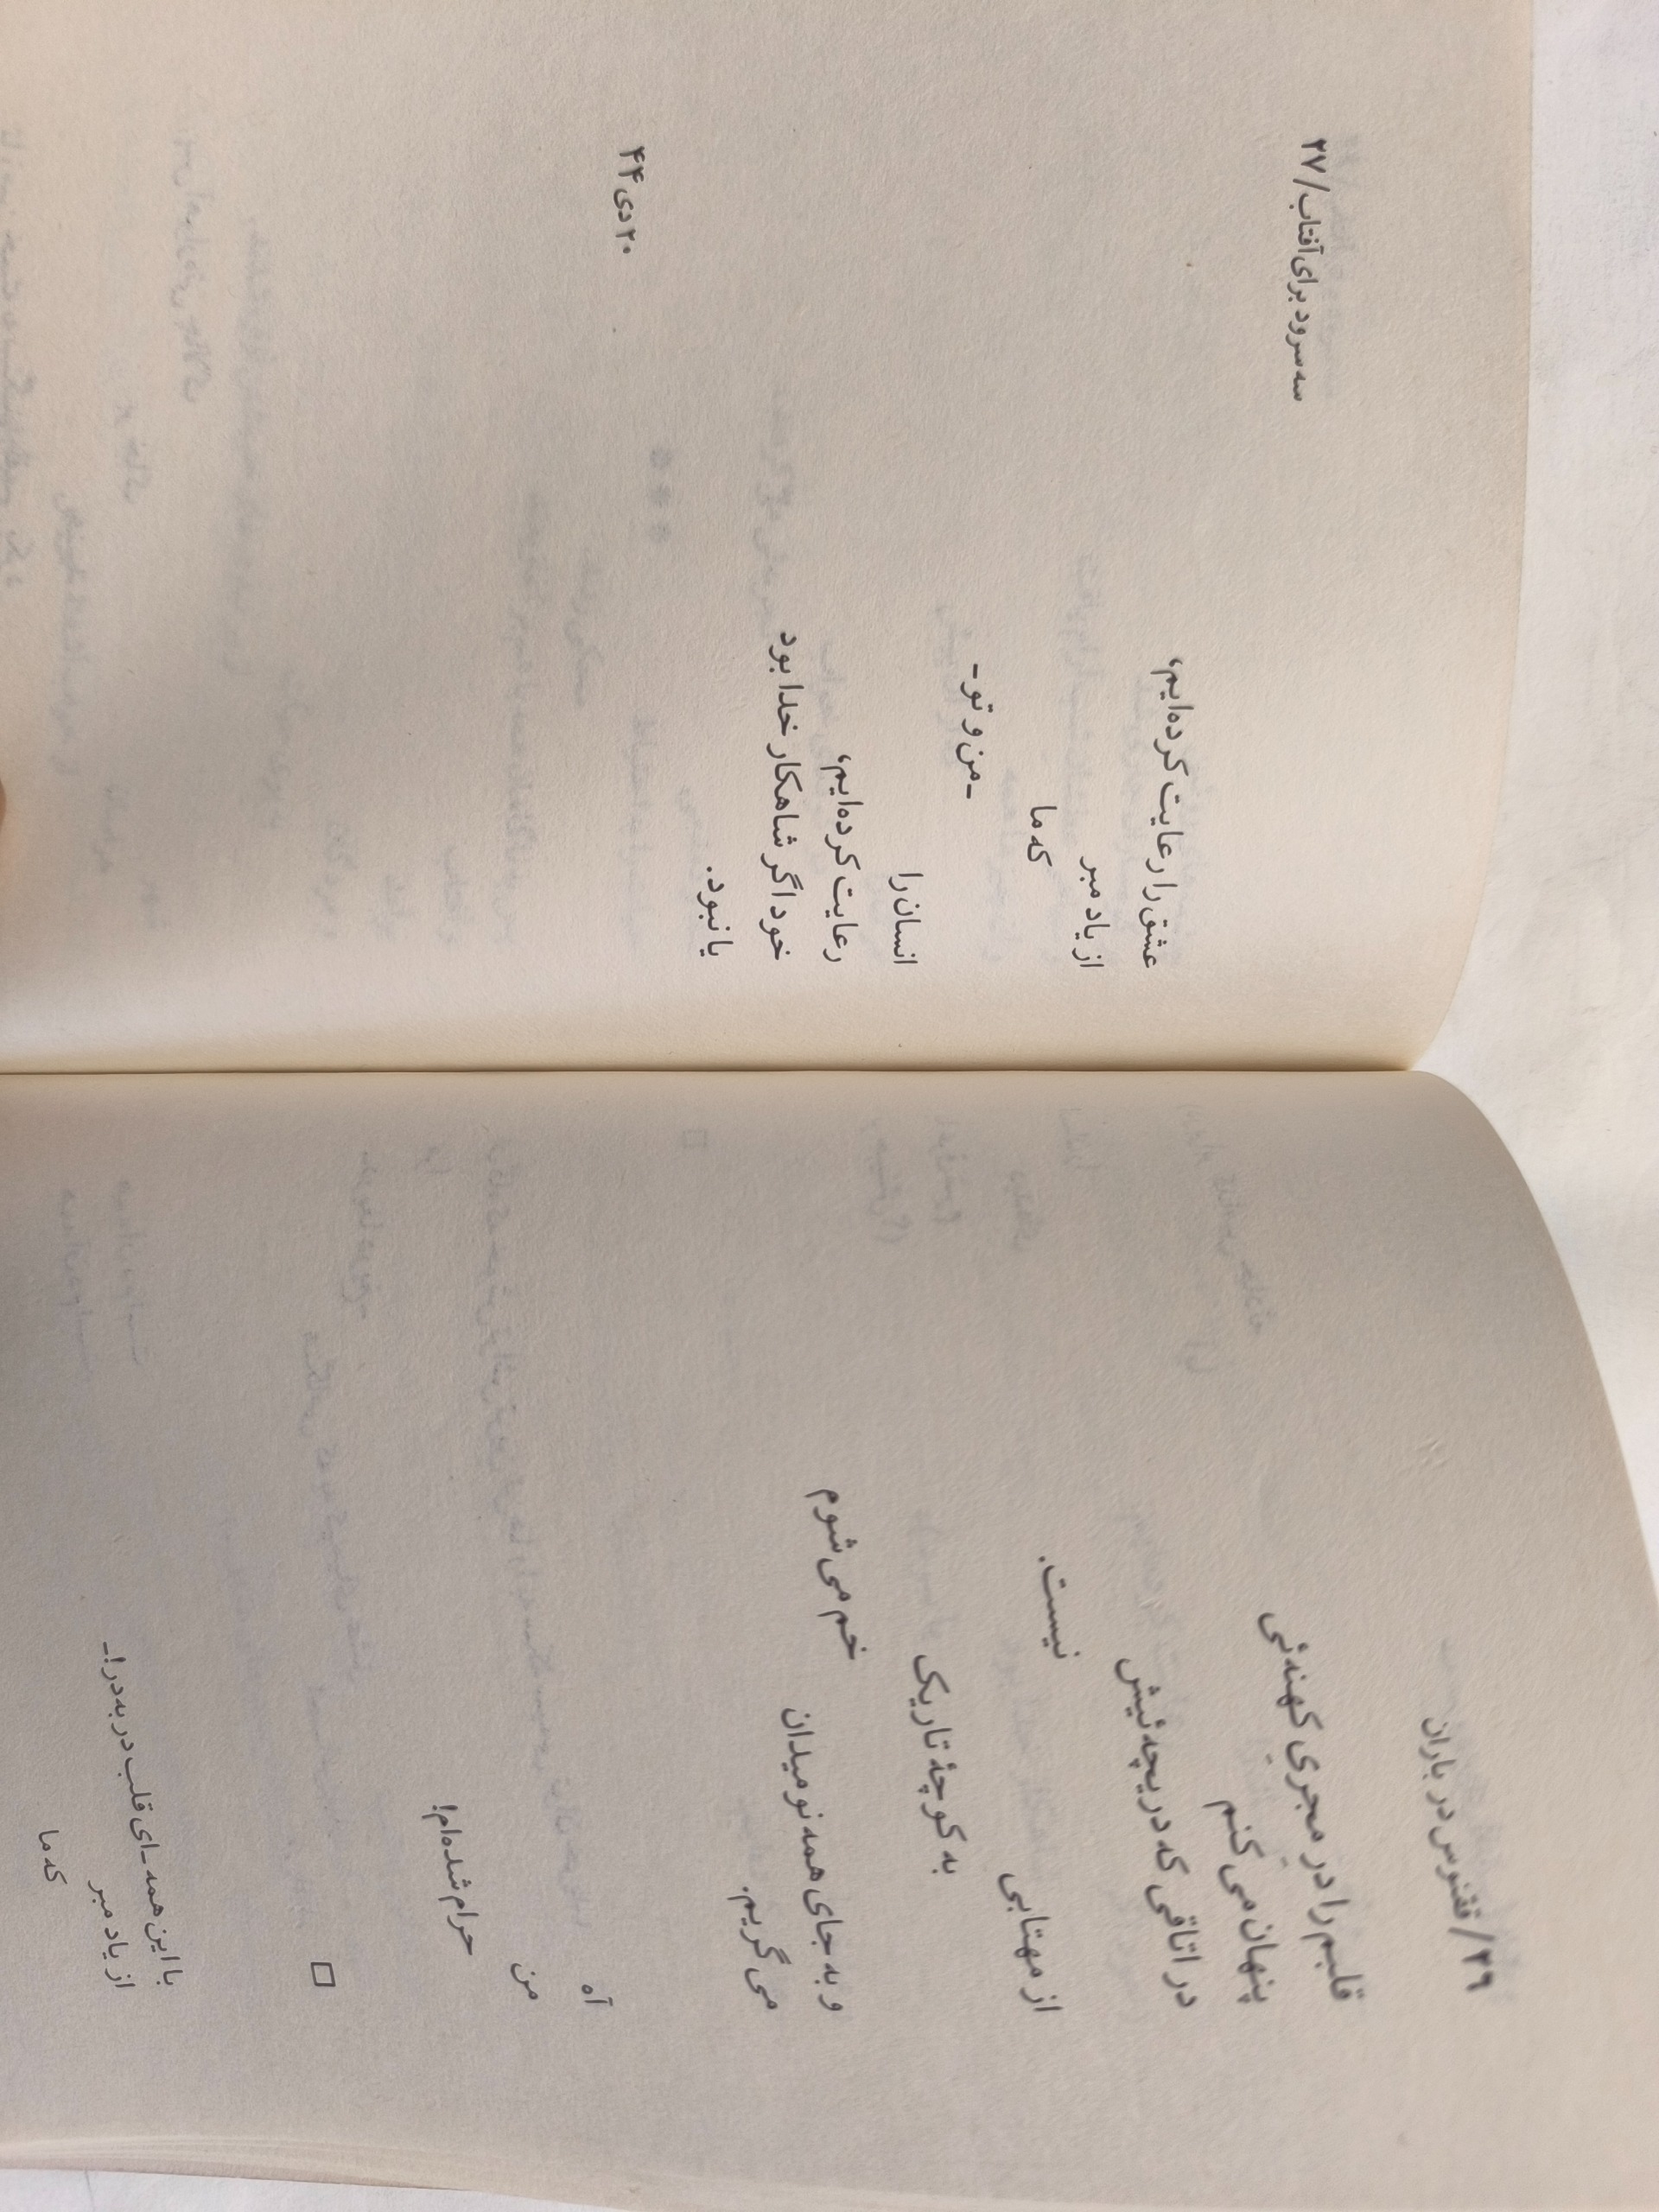 ۳۶/ ققنوس در باران
قلبم را در مجریِ کهنه‌ئی
پنهان می‌کنم
در اتاقی که دریچه‌ئیش
نیست.
از مهتابی
به کوچهٔ تاریک
خم می‌شوم
و به جای همه نومیدان
می‌گریم.
آه
من
حرام شده‌ام!
□
با این همه -ای قلب در به در!-
از یاد مبر
که ما
سه سرود برای آفتاب/ ۳۷
عشق را رعایت کرده‌ایم،
از یاد مبر
که ما
-من و تو-
انسان را
رعایت کرده‌ایم،
خود اگر شاهکار خدا بود
یا نبود.
۲۰ دی ۴۴